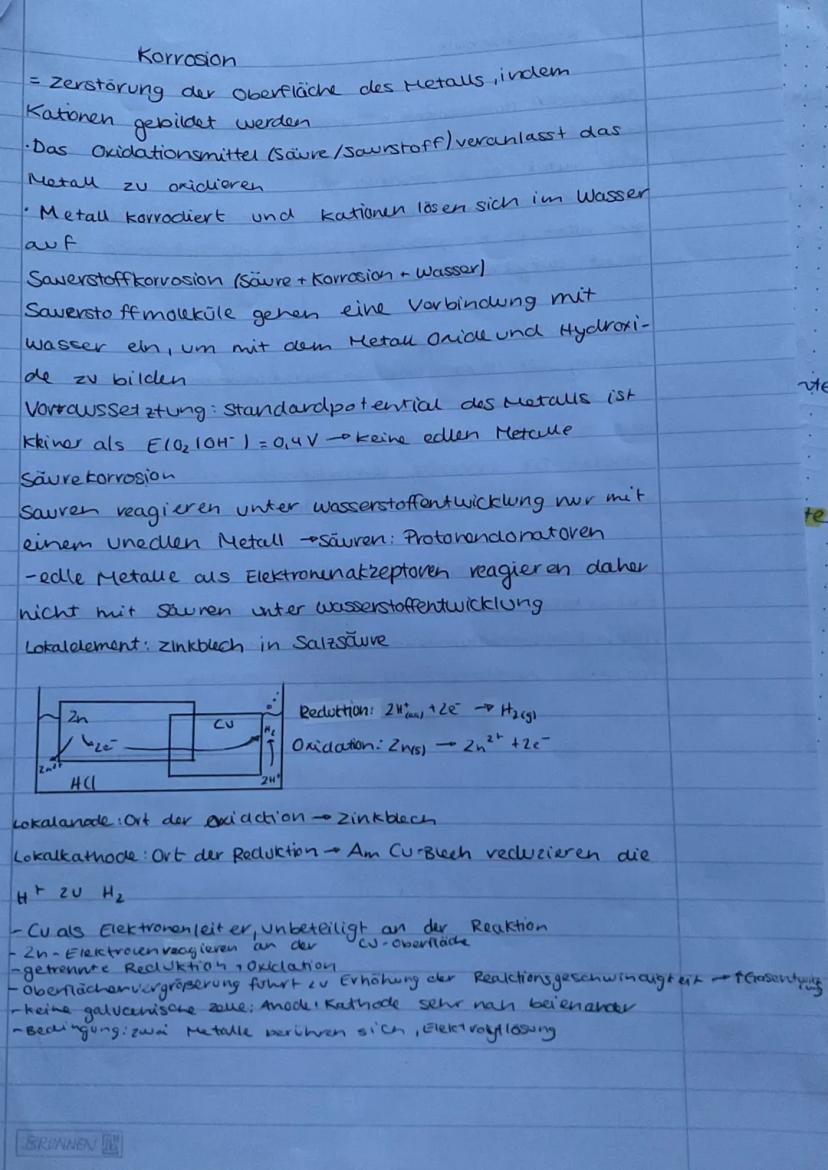 Korrosion
= Zerstörung der Oberfläche des Metalls, indem
Kationen gebildet werden
·Das Oxidationsmittel (Säure/Saurstoff) veranlasst das
Metall zu oxidieren
· Metall korrodiert und Kationen lösen sich im Wasser
auf
Sauerstoffkorrosion (Säure + Korrosion + Wasser)
Sauerstoffmoleküle gehen eine Verbindung mit
Wasser ein, um mit dem Metall Oxide und Hydroxi-
de zu bilden
Vorraussetztung: Standardpotential des Metalls ist
kleiner als E(O₂/OH⁻) = 0,4V → keine edlen Metalle
Säurekorrosion
Säuren reagieren unter Wasserstoffentwicklung nur mit
einem unedlen Metall → Säuren: Protonendonatoren
-edle Metalle als Elektronenakzeptoren reagieren daher
nicht mit Säuren unter Wasserstoffentwicklung
Lokalelement: Zinkblech in Salzsäure
Zn
Cu
2e⁻
H₂
Zn²⁺
HCl
2H⁺
Reduktion: 2H⁺(aq) + 2e⁻ → H₂(g)
Oxidation: Zn(s) → Zn²⁺ + 2e⁻
Lokalanode: Ort der Oxidation → Zinkblech
Lokalkathode: Ort der Reduktion → Am Cu-Blech reduzieren die
H⁺ zu H₂
- Cu als Elektronenleiter, unbeteiligt an der Reaktion
- Zn-Elektronen reagieren an der Cu-Oberfläche
- getrennte Reduktion, Oxidation
- Oberflächenvergrößerung führt zu Erhöhung der Reaktionsgeschwindigkeit →
- keine galvanische Zelle: Anode, Kathode sehr nah beienander
- Bedingung: zwei Metalle berühren sich, Elektrolytlösung
te
BRUNNEN